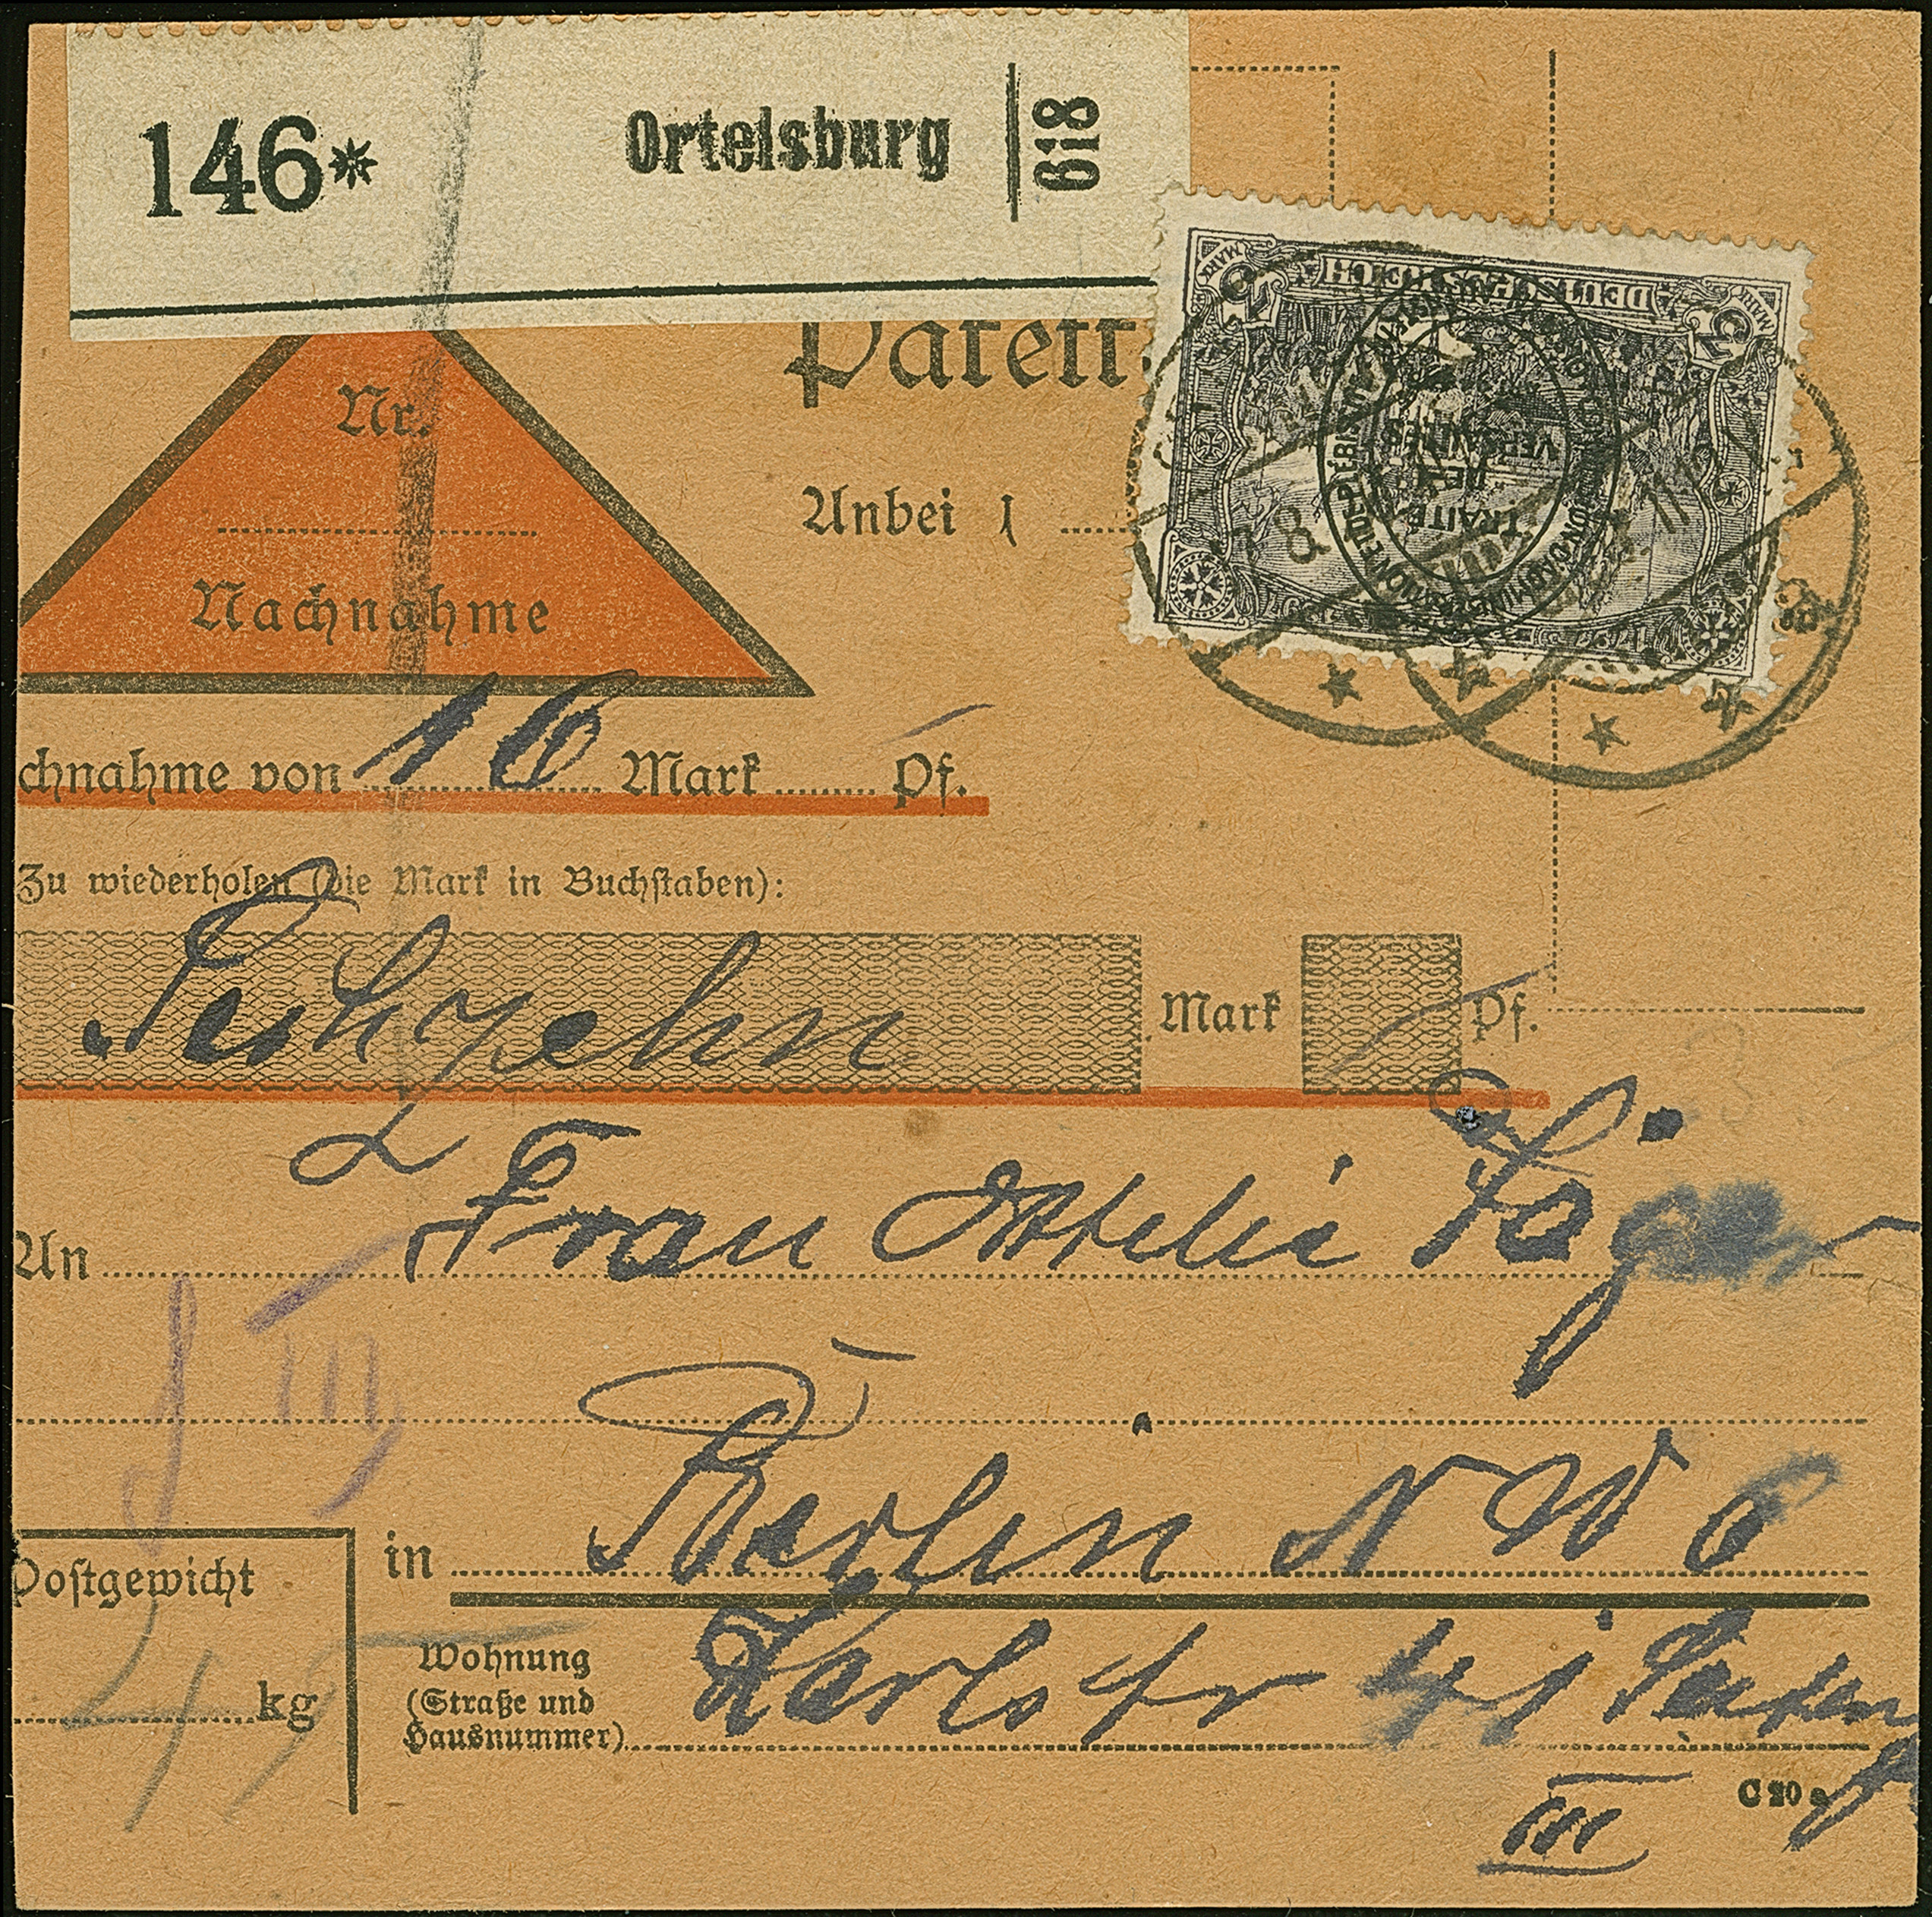 146* Ortelsburg 618
Paketk
Nr.
Anbei 1
Nachnahme
DEUTSCHES REICH
MARK 2 MARK 2
TRAITÉ
DE
VERSAILLES
chnahme von 16 Mark Pf.
Zu wiederholen (die Mark in Buchstaben):
Sechzehn Mark Pf.
An Frau Ottilie Jäger
III
in Berlin N W 6
Postgewicht
kg
Wohnung
(Straße und
Hausnummer)
Karlstr
III
C 20 a